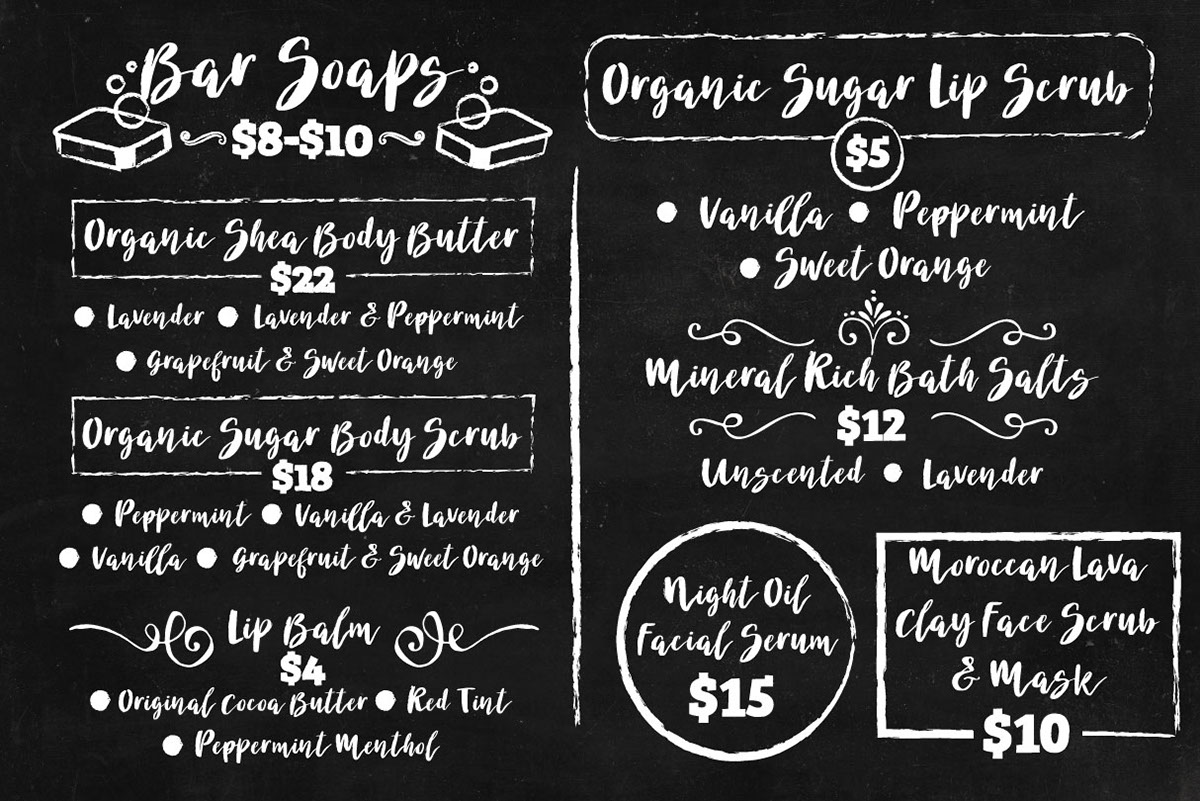 Bar Soaps
$8-$10
Organic Shea Body Butter
$22
● Lavender ● Lavender & Peppermint
● Grapefruit & Sweet Orange
Organic Sugar Body Scrub
$18
● Peppermint ● Vanilla & Lavender
● Vanilla ● Grapefruit & Sweet Orange
Lip Balm
$4
● Original Cocoa Butter ● Red Tint
● Peppermint Menthol
Organic Sugar Lip Scrub
$5
● Vanilla ● Peppermint
● Sweet Orange
Mineral Rich Bath Salts
$12
Unscented ● Lavender
Night Oil
Facial Serum
$15
Moroccan Lava
Clay Face Scrub
& Mask
$10